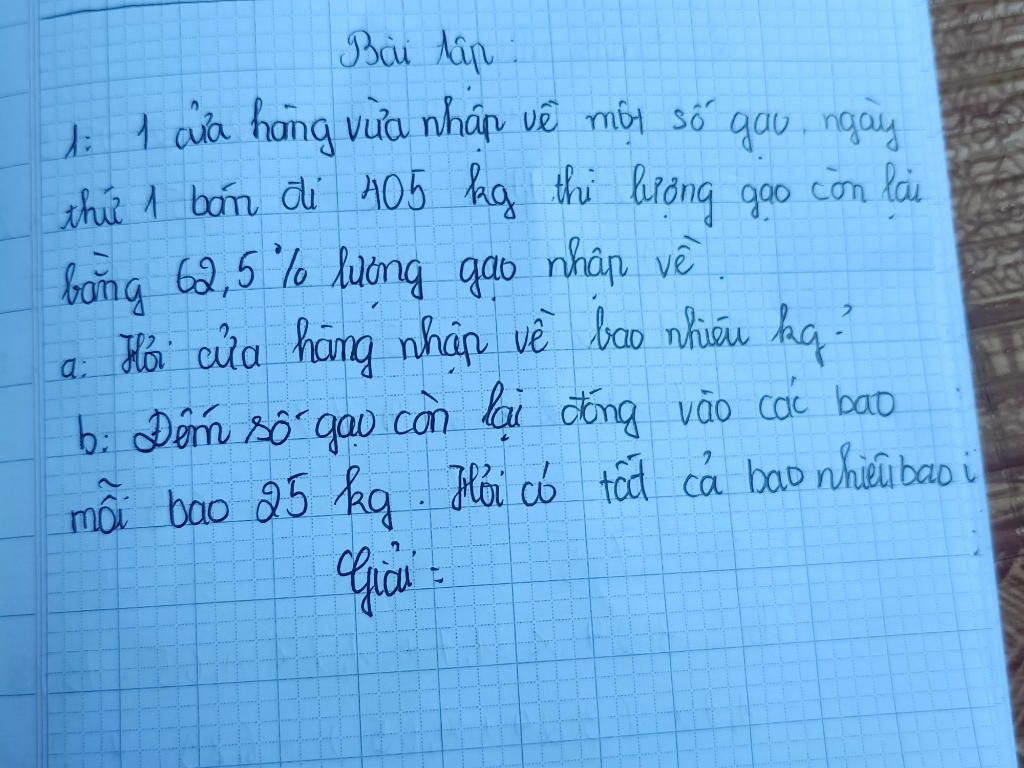 Bài tập:
1: 1 cửa hàng vừa nhập về một số gạo. ngày
thứ 1 bán đi 405 kg thì lượng gạo còn lại
bằng 62,5% lượng gạo nhập về.
a: Hỏi cửa hàng nhập về bao nhiêu kg?
b: Đếm số gạo còn lại đóng vào các bao
mỗi bao 25 kg. Hỏi có tất cả bao nhiêu bao
Giải: